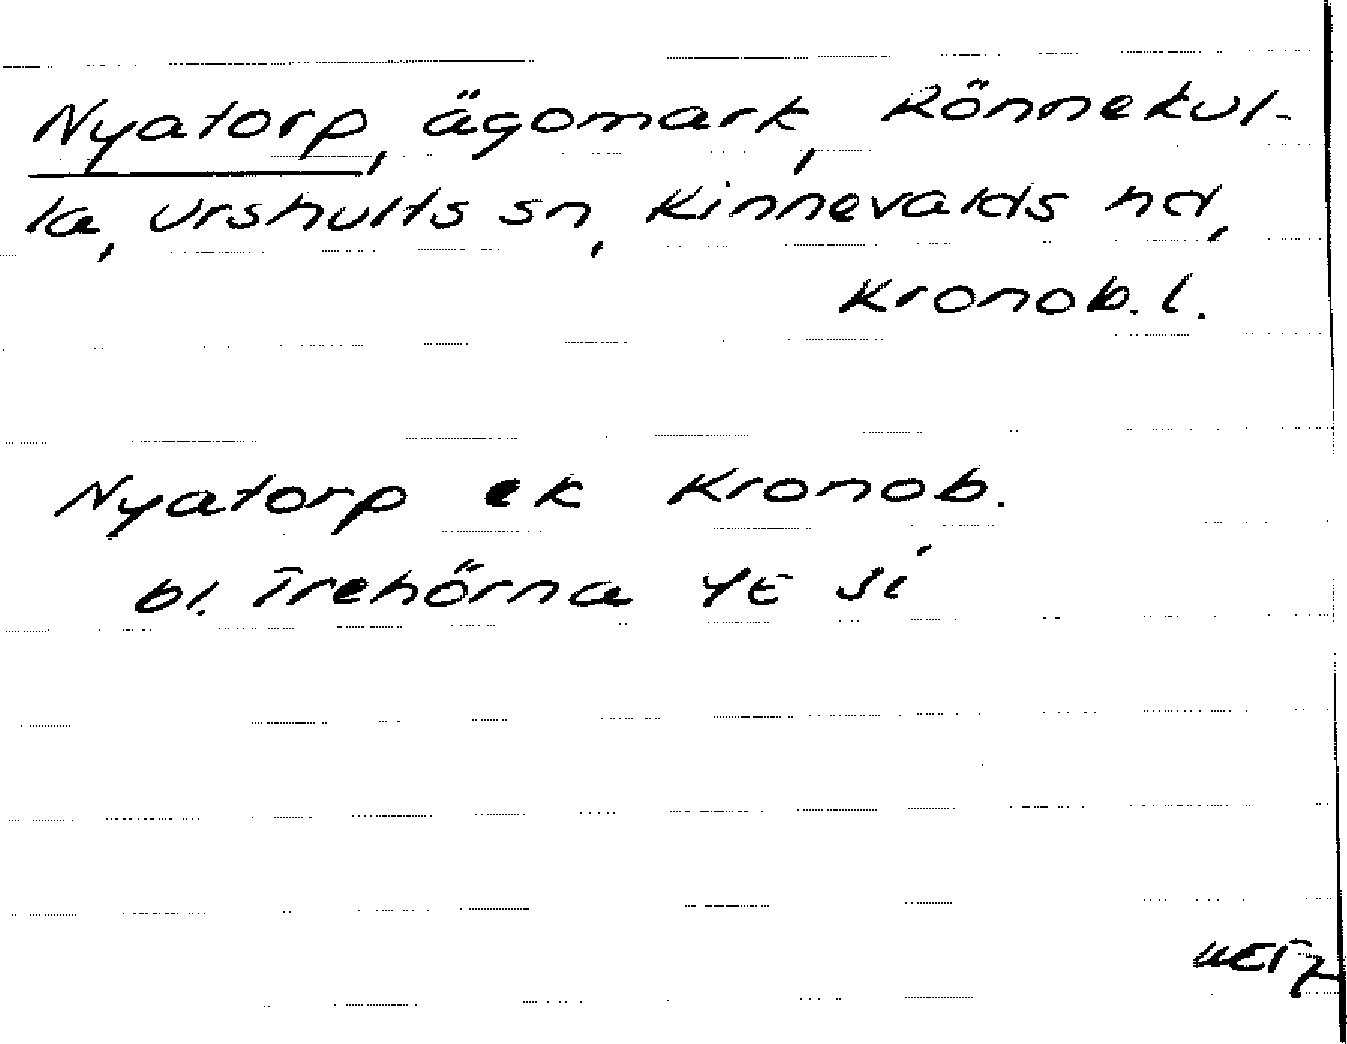 Nyatorp, ägomark, Rönnekul-
la, Urshults sn, Kinnevalds hd,
Kronob. l.
Nyatorp ek Kronob.
bl. Trehörna 4E Ji